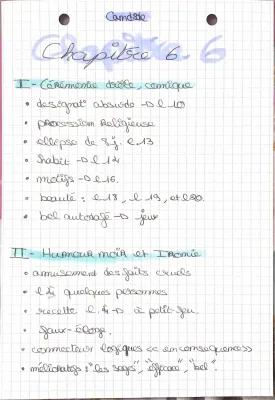 Candide
Chapitre 6
I - Cérémonie drôle, comique
• désignat° absurde → l.10
• procession Religieuse
• ellipse de 8j. l.13
• habit → l.14
• motifs → l.16.
• beauté : l.18, l.19, et l.20.
• bel autodafé → jeu
II - Humour noir et Ironie
• amusement des faits cruels
• quelques personnes
• recette l.4 → à petit feu
• faux-éloge.
• connecteur logiques « en conséquence »
• mélioratifs : "les sages", "efficace", "bel"